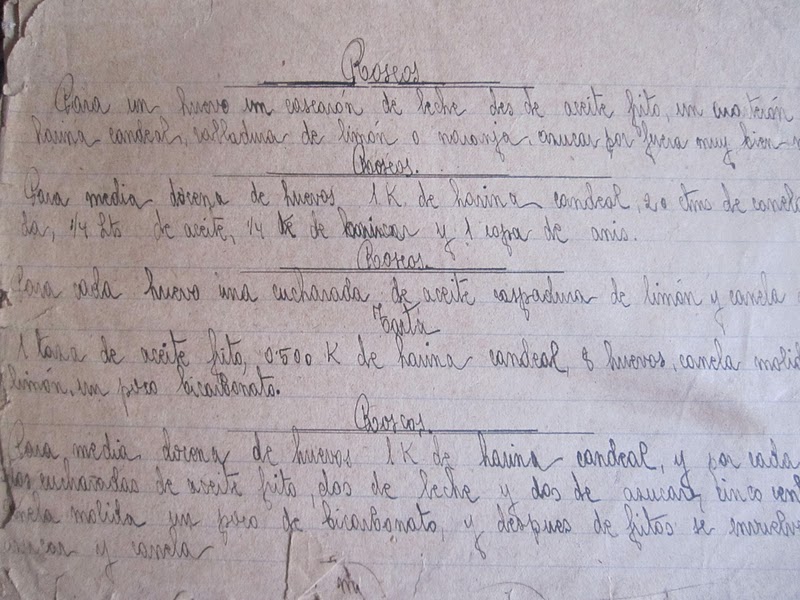 Roscos.
Para un huevo un cascarón de leche dos de aceite frito, un cuarterón
harina candeal, ralladura de limón o naranja, azucar por fuera muy bien
Roscos.
Para media docena de huevos 1 K. de harina candeal, 20 ctms de canela
da, 1/4 Lts de aceite, 1/4 de y 1 copa de anis.
Roscos.
Para cada huevo una cucharada de aceite raspadura de limón y canela
Torta
1 taza de aceite frito, 0'500 K de harina candeal, 8 huevos, canela molid
limón, un poco bicarbonato.
Roscos.
Para media docena de huevos 1 K de harina candeal, y por cada
dos cucharadas de aceite frito, dos de leche y dos de azucar, cinco cen
nela molida un poco de bicarbonato, y despues de fritos se enruelv
azucar y canela